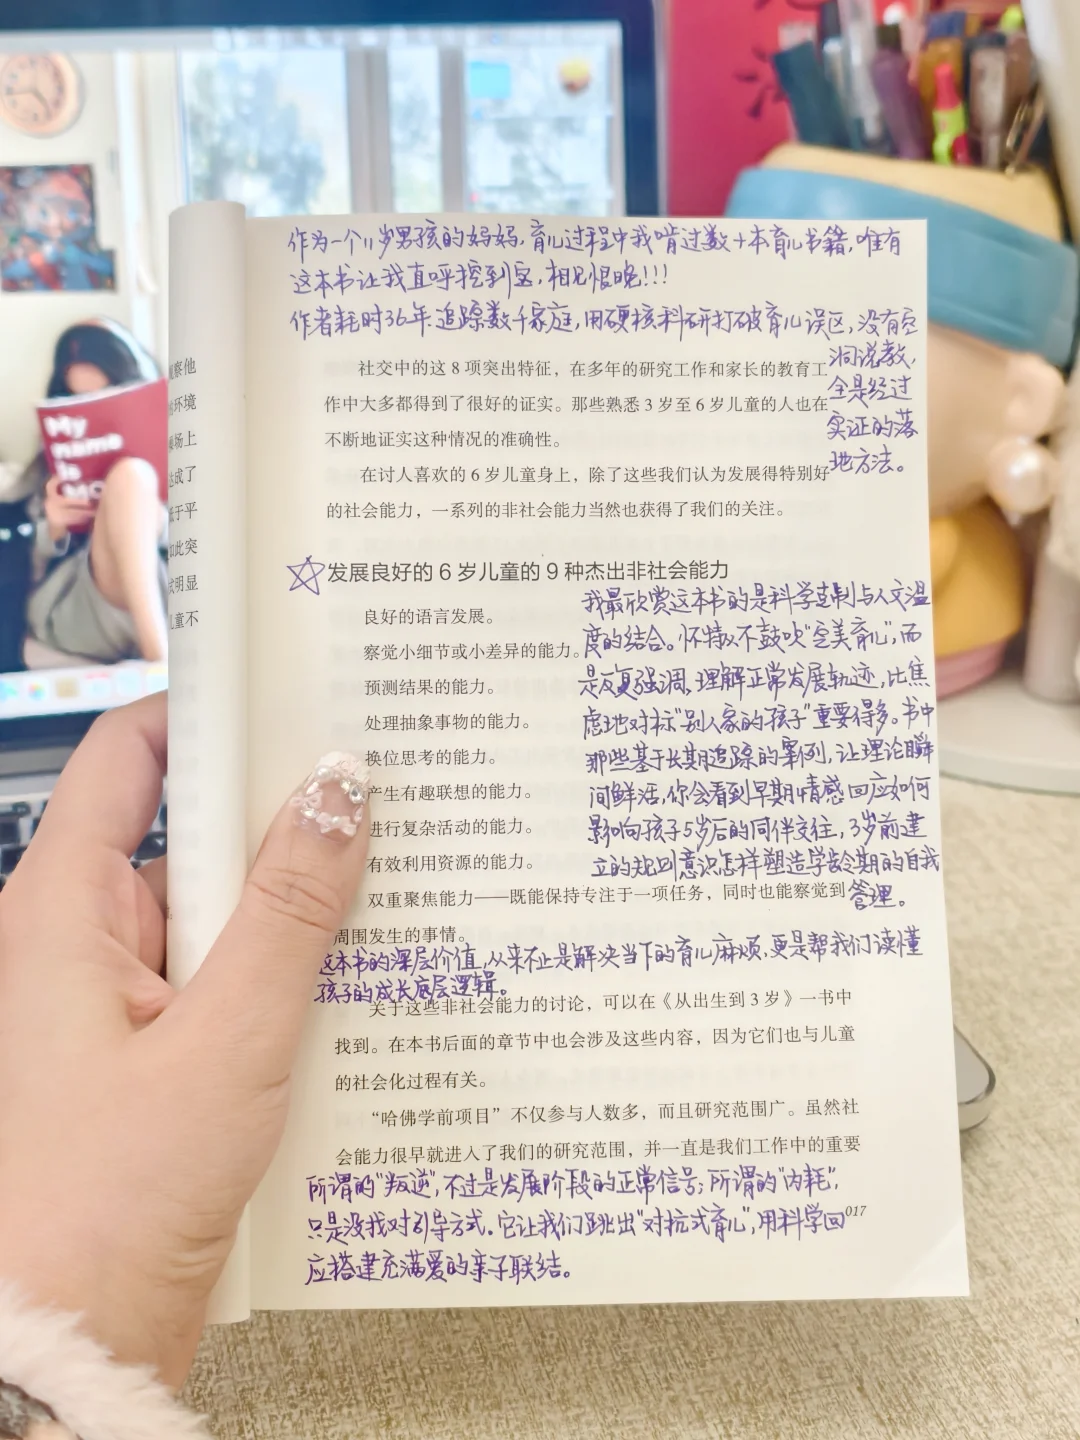 作为一个11岁男孩的妈妈，育儿过程中我啃过数十本育儿书籍，唯有
这本书让我直呼挖到宝，相见恨晚！！！
作者耗时36年追踪数千家庭，用硬核科研打破育儿误区，没有空
洞说教，
全是经过
实证的落
地方法。
社交中的这 8 项突出特征，在多年的研究工作和家长的教育工
作中大多都得到了很好的证实。那些熟悉 3 岁至 6 岁儿童的人也在
不断地证实这种情况的准确性。
在讨人喜欢的 6 岁儿童身上，除了这些我们认为发展得特别好
的社会能力，一系列的非社会能力当然也获得了我们的关注。
发展良好的 6 岁儿童的 9 种杰出非社会能力
良好的语言发展。
察觉小细节或小差异的能力。
预测结果的能力。
处理抽象事物的能力。
换位思考的能力。
产生有趣联想的能力。
进行复杂活动的能力。
有效利用资源的能力。
双重聚焦能力——既能保持专注于一项任务，同时也能察觉到
周围发生的事情。
我最欣赏这本书的是科学克制与人文温
度的结合。怀特从不鼓吹“完美育儿”，而
是反复强调，理解正常发展轨迹，比焦
虑地对标“别人家的孩子”重要得多。书中
那些基于长期追踪的案例，让理论瞬
间鲜活，你会看到早期情感回应如何
影响孩子5岁后的同伴交往，3岁前建
立的规则意识怎样塑造学龄期的自我
管理。
这本书的深层价值，从来不止是解决当下的育儿麻烦，更是帮我们读懂
孩子的成长底层逻辑。
关于这些非社会能力的讨论，可以在《从出生到 3 岁》一书中
找到。在本书后面的章节中也会涉及这些内容，因为它们也与儿童
的社会化过程有关。
“哈佛学前项目”不仅参与人数多，而且研究范围广。虽然社
会能力很早就进入了我们的研究范围，并一直是我们工作中的重要
所谓的“叛逆”，不过是发展阶段的正常信号；所谓的“内耗”，
只是没找对引导方式。它让我们跳出“对抗式育儿”，用科学回
应搭建充满爱的亲子联结。
017
察他
环境
场上
达成了
于平
如此突
明显
儿童不
My
name
is